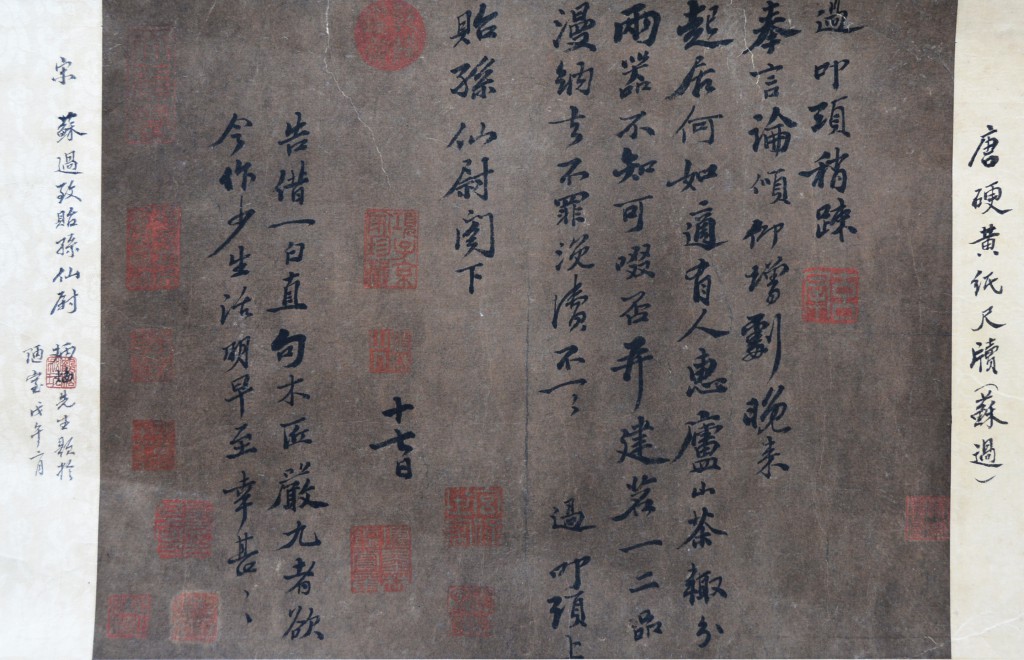 唐硬黄纸尺牘（蘇過）
過叩頭稍踈
奉言論傾仰增劇晚来
起居何如適有人惠廬山茶輙分
兩器不知可啜否并建茗一二品
漫納去不罪浼瀆不一〻 過叩頭上
貽孫仙尉閤下
十七日
告借一白直句木匠嚴九者欲
今作少生活明早至幸甚〻
宋 蘇過致貽孫仙尉
先生題於
陋室戊午二月